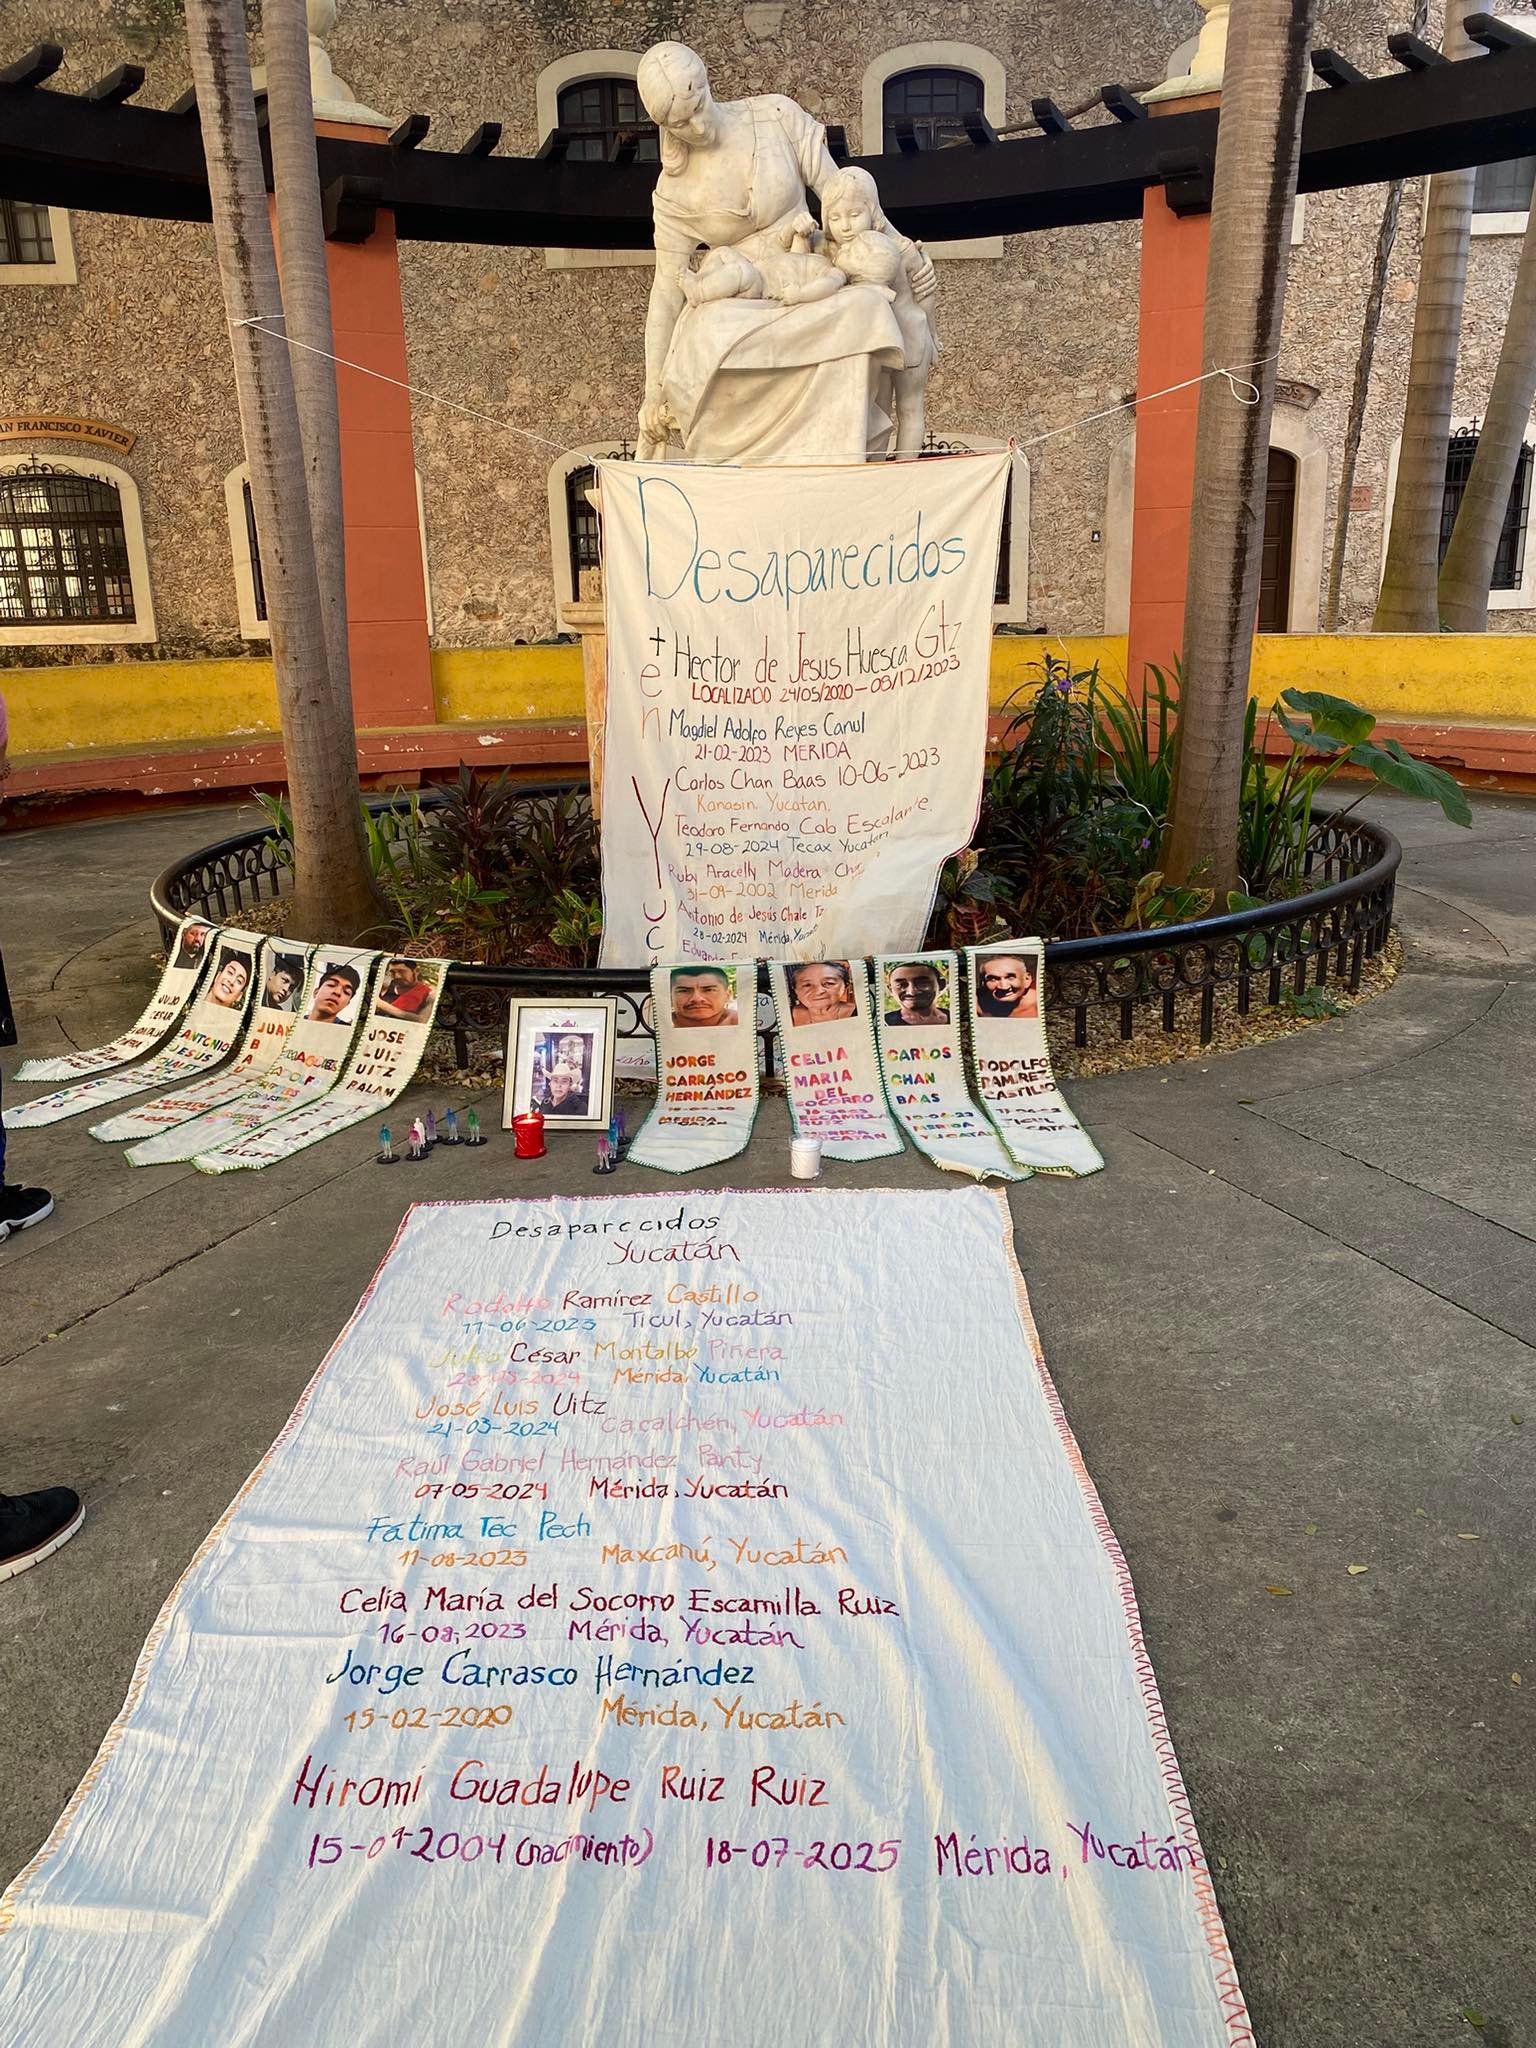 AN FRANCISCO XAVIER
Desaparecidos
en Yuca
† Hector de Jesus Huesca Gtz
LOCALIZADO 24/05/2020 - 08/12/2023
Magdiel Adolfo Reyes Canul
21-02-2023 MERIDA
Carlos Chan Baas 10-06-2023
Kanasin. Yucatan.
Teodoro Fernando Cab Escalante.
29-08-2024 Tecax Yucatan
Ruby Aracelly Madera
31-09-2002 Merida
Antonio de Jesús Chale
28-02-2024 Mérida,
Eduardo
ANTONIO
JESUS
CHALE
JUAN
JOSÉ
LUIS
UITZ
BALAM
JORGE
CARRASCO
HERNÁNDEZ
MERIDA
CELIA
MARIA
DEL
SOCORRO
ESCAMILLA
RUIZ
MERIDA
YUCATÁN
CARLOS
CHAN
BAAS
10-06-23
YUCATAN
RODOLFO
RAMIREZ
CASTILLO
11-06-23
TICUL
Desaparecidos
Yucatán
Rodolfo Ramírez Castillo
11-06-2023 Ticul, Yucatán
Julio César Montalbo Piñera
Mérida, Yucatán
José Luis Uitz
21-03-2024 Cacalchén, Yucatán
Raúl Gabriel Hernández Panty
07-05-2024 Mérida, Yucatán
Fátima Tec Pech
11-08-2023 Maxcanú, Yucatán
Celia María del Socorro Escamilla Ruiz
16-08-2023 Mérida, Yucatán
Jorge Carrasco Hernández
15-02-2020 Mérida, Yucatán
Hiromi Guadalupe Ruiz Ruiz
15-09-2004 (nacimiento) 18-07-2025 Mérida, Yucatán